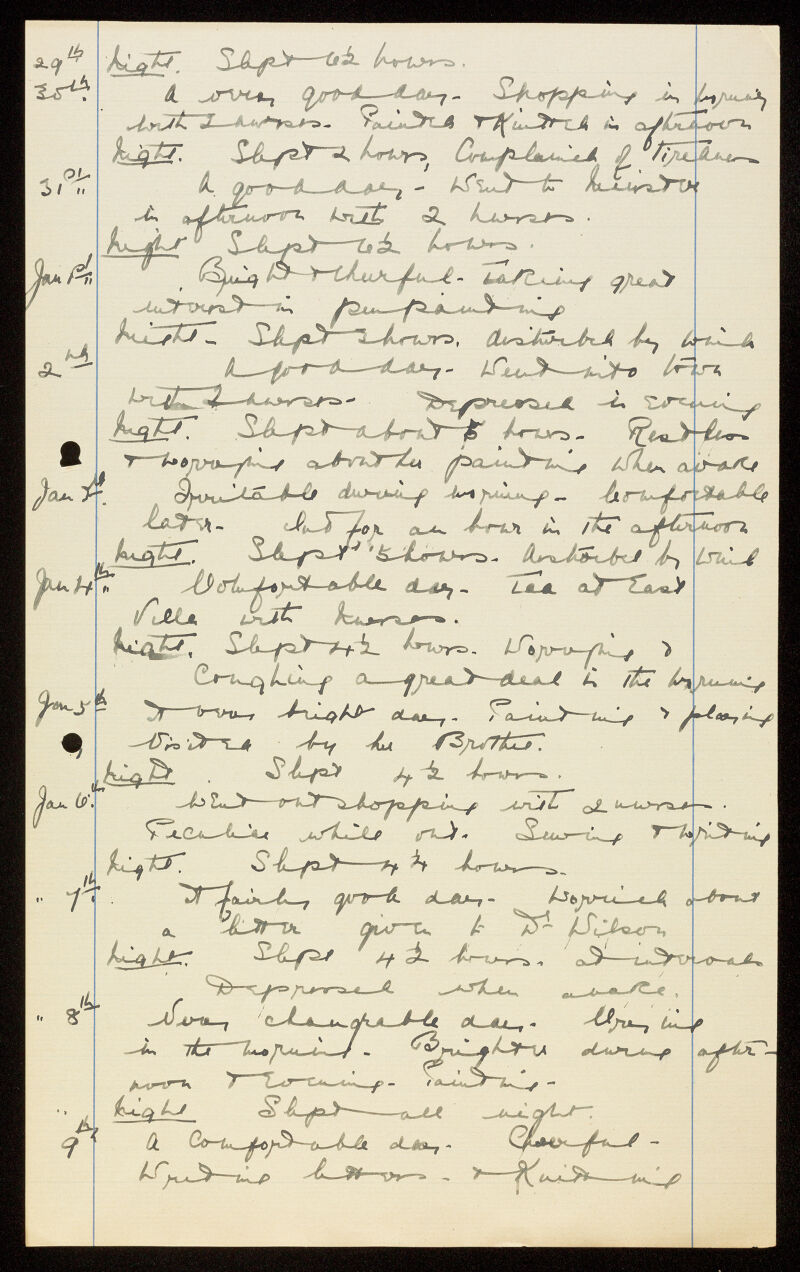 29th Night. Slept 6½ hours.
30th. A very good day - Shopping in morning
with 2 nurses - Painted & Knitted in afternoon
Night. Slept 2 hours, Complained of Tiredness
31st A good day - Went to Minster
in afternoon with 2 nurses.
Night Slept 6½ hours.
Jan 1st Bright & cheerful - Taking great
interest in pen painting
Night - Slept 2 hours. disturbed by wind
2nd A good day - Went into town
with 2 nurses - Depressed in Evening
Night. Slept about 5 hours - Restless
& worrying about her painting when awake
Jan 3rd. Irritable during morning - Comfortable
later - Out for an hour in the afternoon
Night. Slept 5 hours - disturbed by Wind
Jan 4th Comfortable day - Tea at East
Villa with Nurses.
Night. Slept 4½ hours - Worrying &
Coughing a great deal in the morning
Jan 5th A very bright day - Painting & playing
Visited by her Brother.
Night Slept 4½ hours.
Jan 6th. Went out shopping with 2 nurses.
Peculiar while out - Sewing & writing
Night. Slept 4¼ hours.
" 7th. A fairly good day - Worried about
a letter given to Dr Wilson
Night. Slept 4½ hours - at intervals
Depressed when awake.
" 8th Very changeable day - Crying
in the morning - Brighter during after-
noon & Evening - Painting -
" Night Slept all night.
9th A Comfortable day - Cheerful -
Writing letters - & Knitting